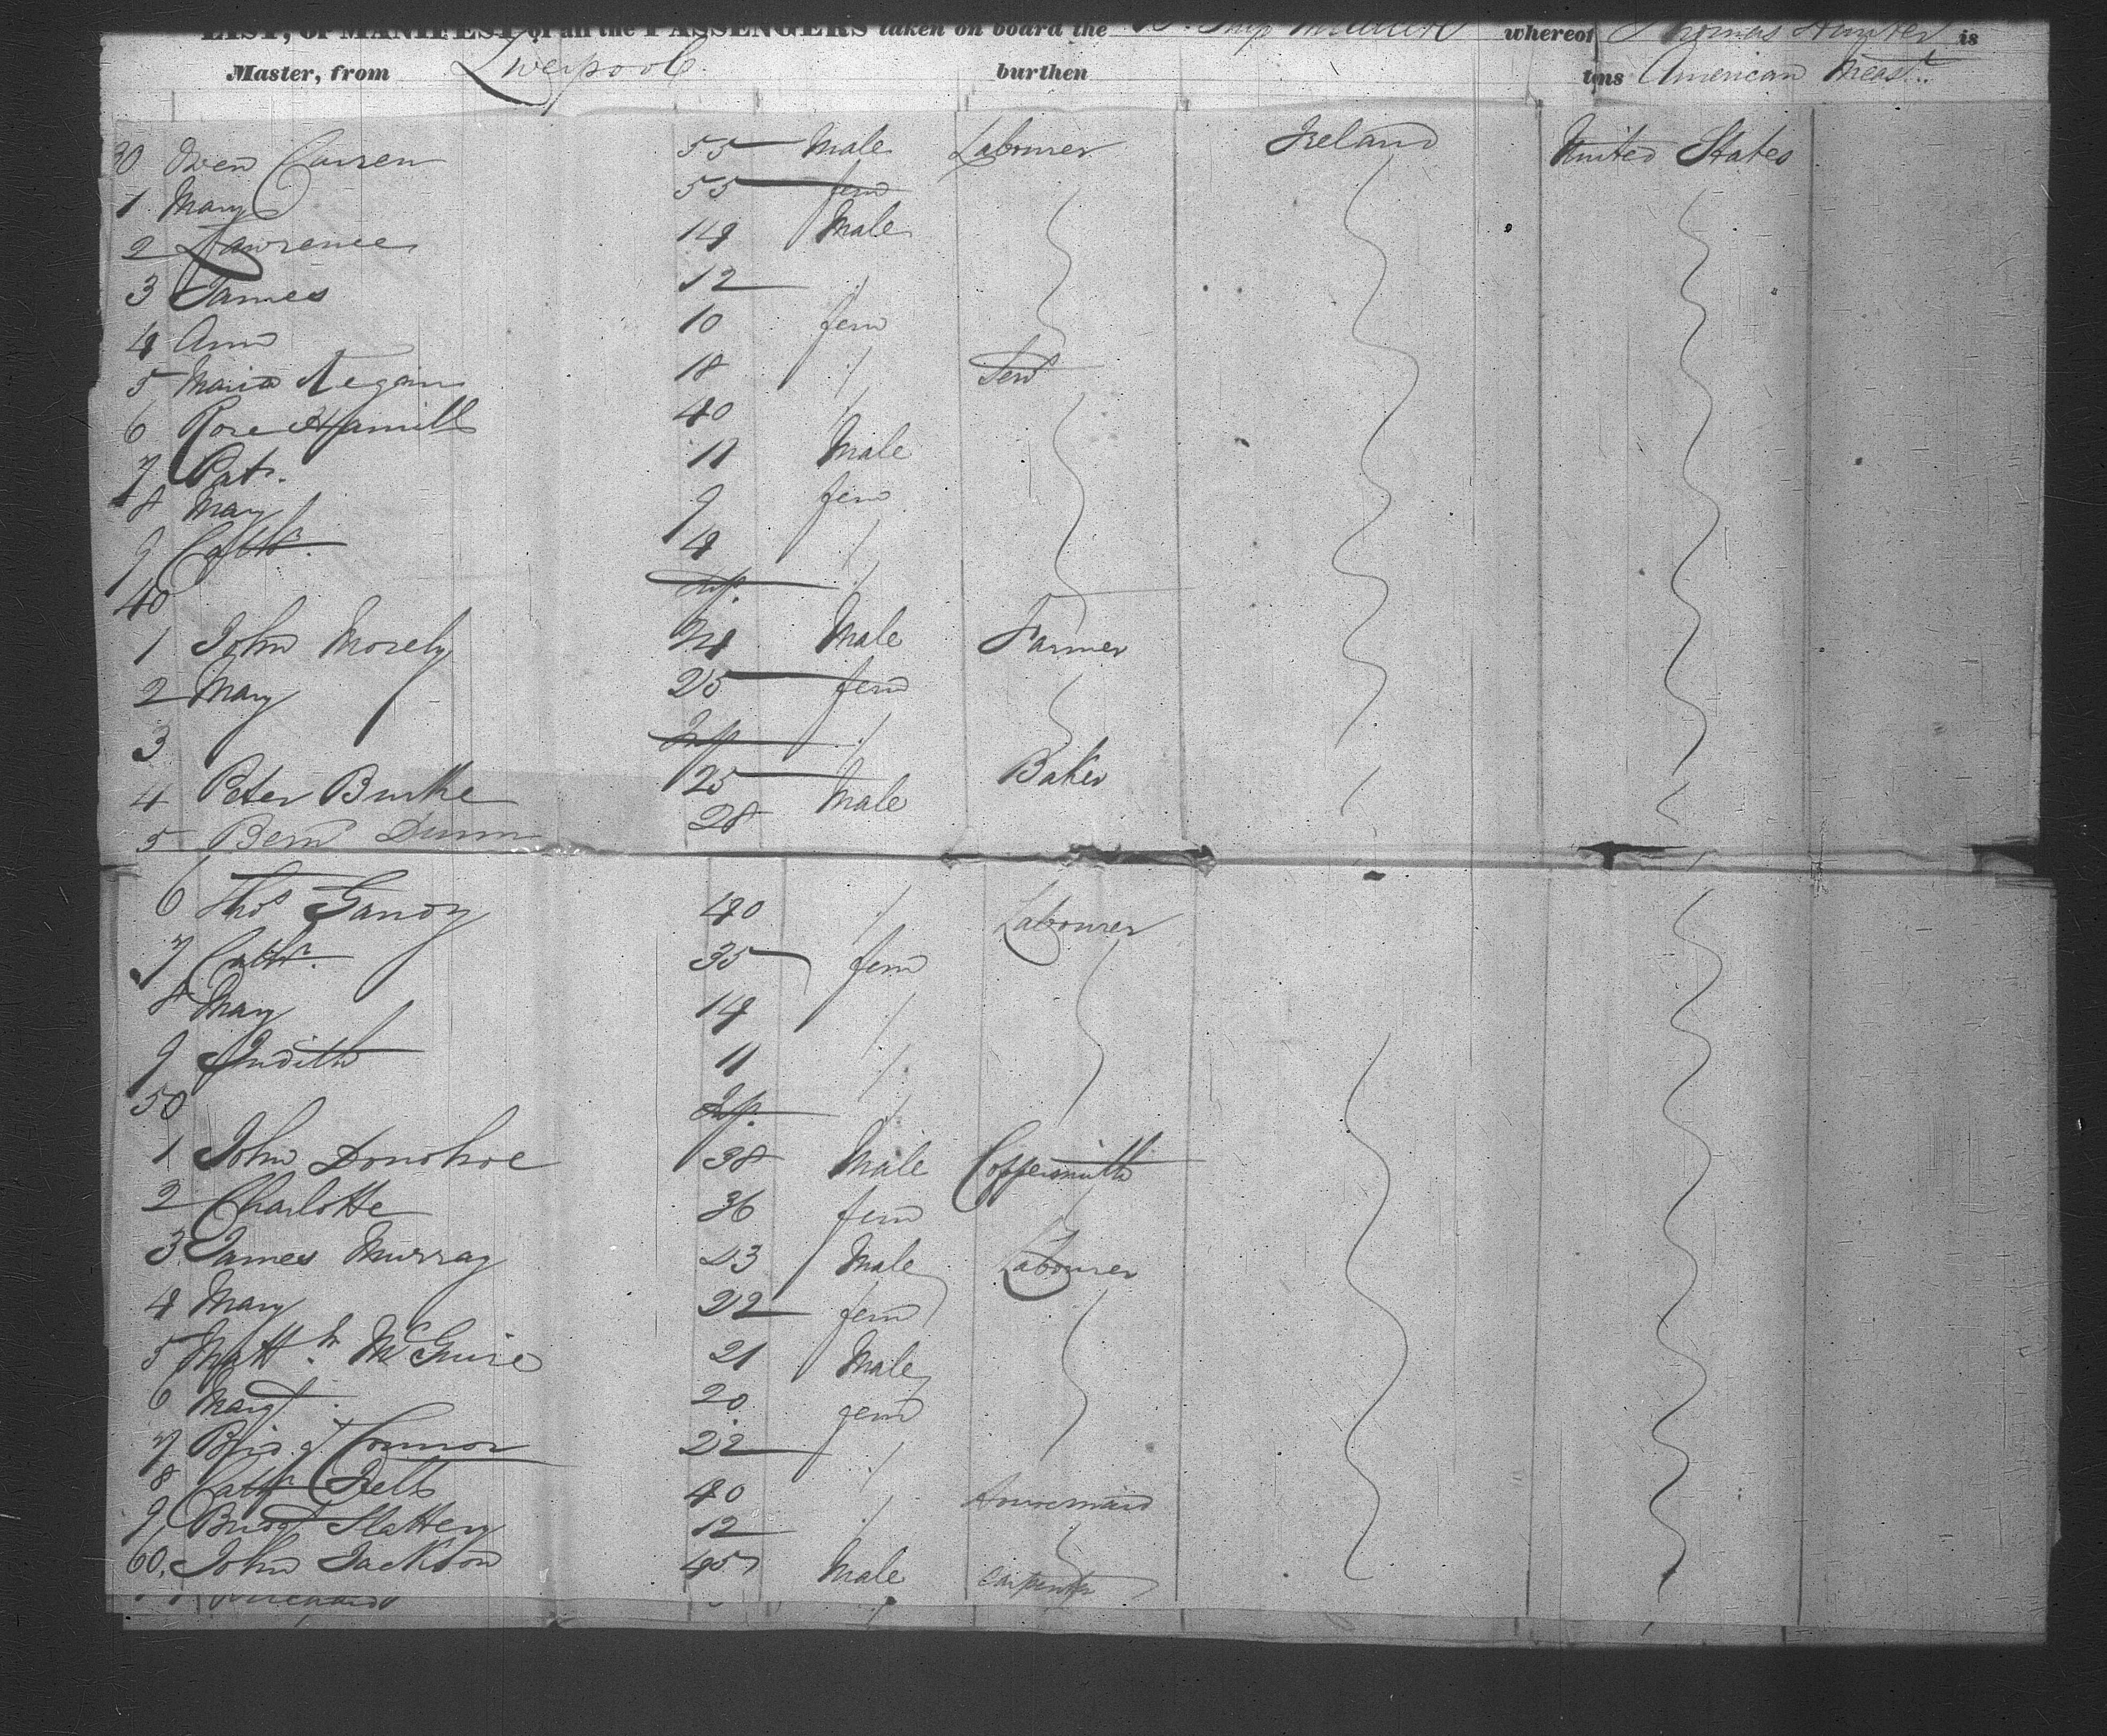 LIST, or MANIFEST of all the PASSENGERS taken on board the Ship whereof Thomas Hunter is
Master, from Liverpool burthen tons American Meast.
30 Owen Curren 55 Male Labourer Ireland United States
1 Mary 55 fem
2 Lawrence 14 Male
3 James 12 "
4 Ann 10 fem
5 Maria Regan 18 " Serv
6 Rose Hamill 40 "
7 Pat. 11 Male
8 Mary 9 fem
9 Cathr. 4 "
40 Inf. "
1 John Morely 24 Male Farmer
2 Mary 25 fem
3 Inf "
4 Peter Burke 25 Male Baker
5 Bern Dunn 28
6 Thos Gandy 40 " Labourer
7 Cathr. 35 fem
8 Mary 14 "
9 Judith 11 "
50 Inf. "
1 John Donohoe 38 Male Coppersmith
2 Charlotte 36 fem
3 James Murray 23 Male Labourer
4 Mary 22 fem
5 Matth. McGuire 21 Male
6 Margt 20 fem
7 Bridgt Connor 22 "
8 Cathr 40 " Housemaid
9 Bridgt Slattery 12 "
60 John Jackson 45 Male Carpenter